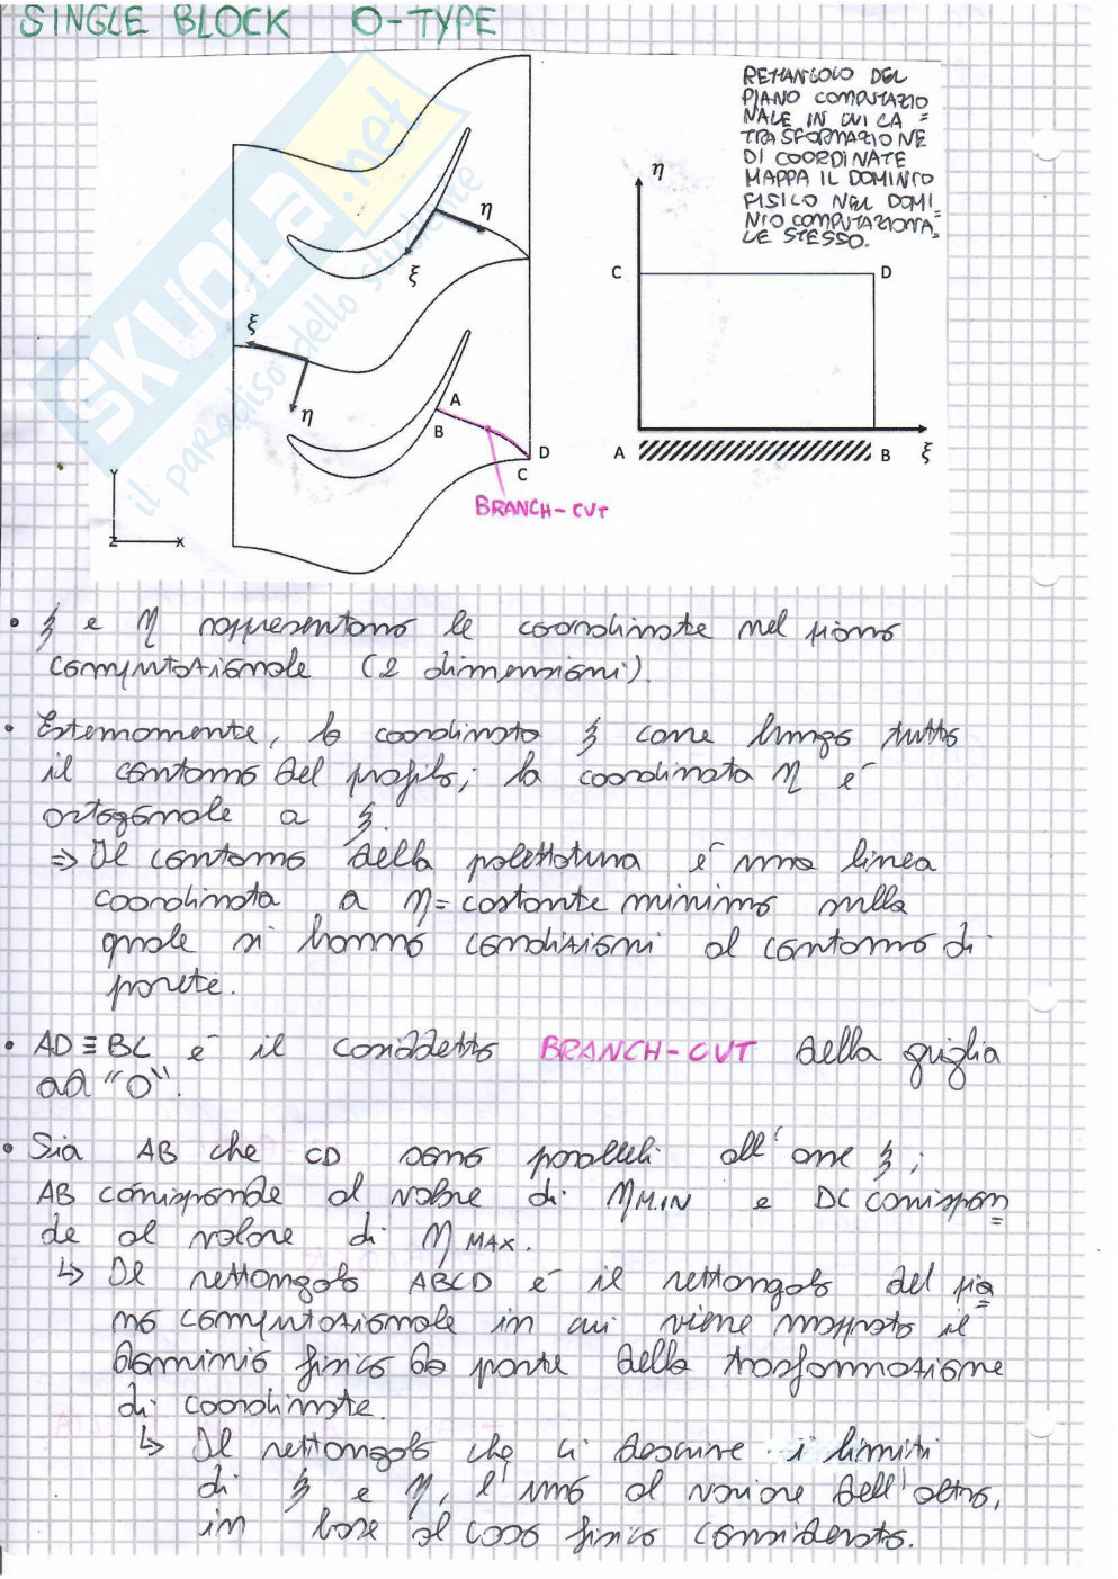 SINGLE BLOCK O-TYPE
RETTANGOLO DEL
PIANO COMPUTAZIO
NALE IN CUI LA =
TRASFORMAZIONE
DI COORDINATE
MAPPA IL DOMINIO
FISICO NEL DOMI
NIO COMPUTAZIONA=
LE STESSO.
η
ξ
ξ
η
A
B
D
C
BRANCH-CUT
Y
Z
X
η
C
D
A
B
ξ
SKUOLA.net
il paradiso dello studente
• ξ e η rappresentano le coordinate nel piano
computazionale (2 dimensioni).
• Esternamente, la coordinata ξ corre lungo tutto
il contorno del profilo; la coordinata η é
ortogonale a ξ.
⇒ Il contorno della palettatura é una linea
coordinata a η = costante minimo sulla
quale si hanno condizioni al contorno di
parete.
• AD ≡ BC é il cosiddetto BRANCH-CUT della griglia
ad "O".
• Sia AB che CD sono paralleli all'asse ξ;
AB corrisponde al valore di ηMIN e DC corrispon=
de al valore di ηMAX.
↳ Il rettangolo ABCD é il rettangolo del pia=
no computazionale in cui viene mappato il
dominio fisico da parte della trasformazione
di coordinate.
↳ Il rettangolo che ci descrive i limiti
di ξ e η, l'uno al variare dell'altro,
in base al caso fisico considerato.